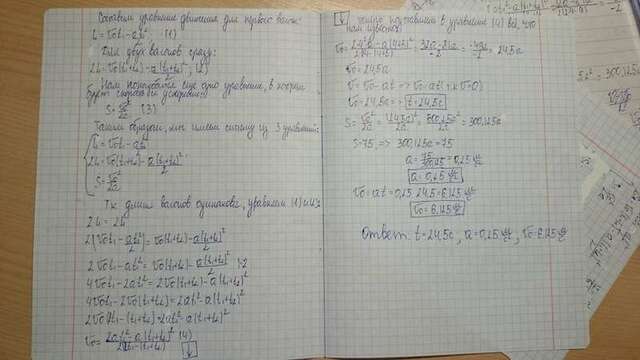 Составим уравнение движения для первого вагона:
L = v₀t₁ - at₁²/2 (1)
Для двух вагонов сразу:
2L = v₀(t₁+t₂) - a(t₁+t₂)²/2 (2)
Нам понадобится еще одно уравнение, в котором
будет скорость и ускорение:
S = v₀²/2a (3)
Таким образом, мы имеем систему из 3 уравнений:
L = v₀t₁ - at₁²/2
2L = v₀(t₁+t₂) - a(t₁+t₂)²/2
S = v₀²/2a
Т.к. длины вагонов одинаковы, уравняем (1) и (2)
2L = 2L
2(v₀t₁ - at₁²/2) = v₀(t₁+t₂) - a(t₁+t₂)²/2
2v₀t₁ - at₁² = v₀(t₁+t₂) - a(t₁+t₂)²/2 |·2
4v₀t₁ - 2at₁² = 2v₀(t₁+t₂) - a(t₁+t₂)²
4v₀t₁ - 2v₀(t₁+t₂) = 2at₁² - a(t₁+t₂)²
2v₀(2t₁ - (t₁+t₂)) = 2at₁² - a(t₁+t₂)²
v₀ = (2at₁² - a(t₁+t₂)²)/(2(2t₁-(t₁+t₂))) (4)
↓
↓ в уравнение (4) всё, что
нам известно:
= 24,5a
v₀ = 24,5a
v = v₀ - at => v₀ = at (т.к. v=0)
v₀ = 24,5a => t = 24,5c
S = v₀²/2a = (24,5a)²/2a = 600,25a²/2a = 300,125a
S = 75, => 300,125a = 75
a = 75/300,125 = 0,25 м/с²
a = 0,25 м/с²
v₀ = at = 0,25·24,5 = 6,125 м/с
v₀ = 6,125 м/с
Ответ: t = 24,5c, a = 0,25 м/с², v₀ = 6,125 м/с